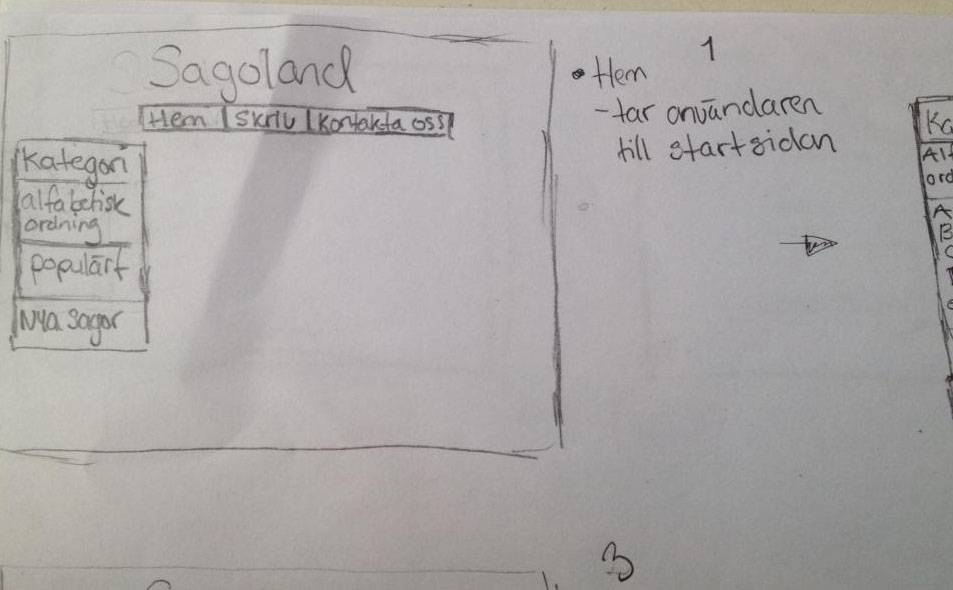 Sagoland
Hem | Skriv | Kontakta oss
Kategori
alfabetisk
ordning
populärt
Nya sagor
1
• Hem
- tar användaren
till startsidan
Ka
Alf
ord
A
B
C
3